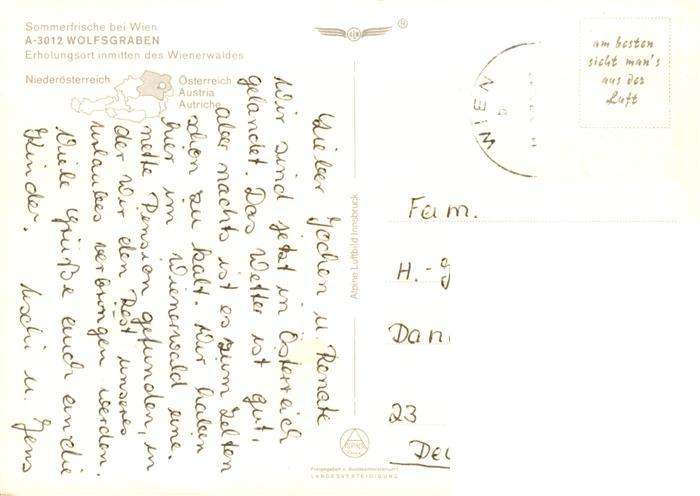 Sommerfrische bei Wien
A-3012 WOLFSGRABEN
Erholungsort inmitten des Wienerwaldes
Niederösterreich
Österreich
Austria
Autriche
®
am besten
sieht man's
aus der
Luft
WIEN
Lieber Jochen u. Renate
Wir sind jetzt in Österreich
gelandet. Das Wetter ist gut,
aber nachts ist es zum Zelten
schon zu kalt. Wir haben
hier im Wienerwald eine
nette Pension gefunden, in
der wir den Rest unseres
Urlaubes verbringen werden.
Viele Grüße euch und die
Kinder.
Uschi u. Jens
Alpine Luftbild Innsbruck
Fam.
H.-
Dan
23
De
Freigegeben v. Bundesministerium f.
LANDESVERTEIDIGUNG